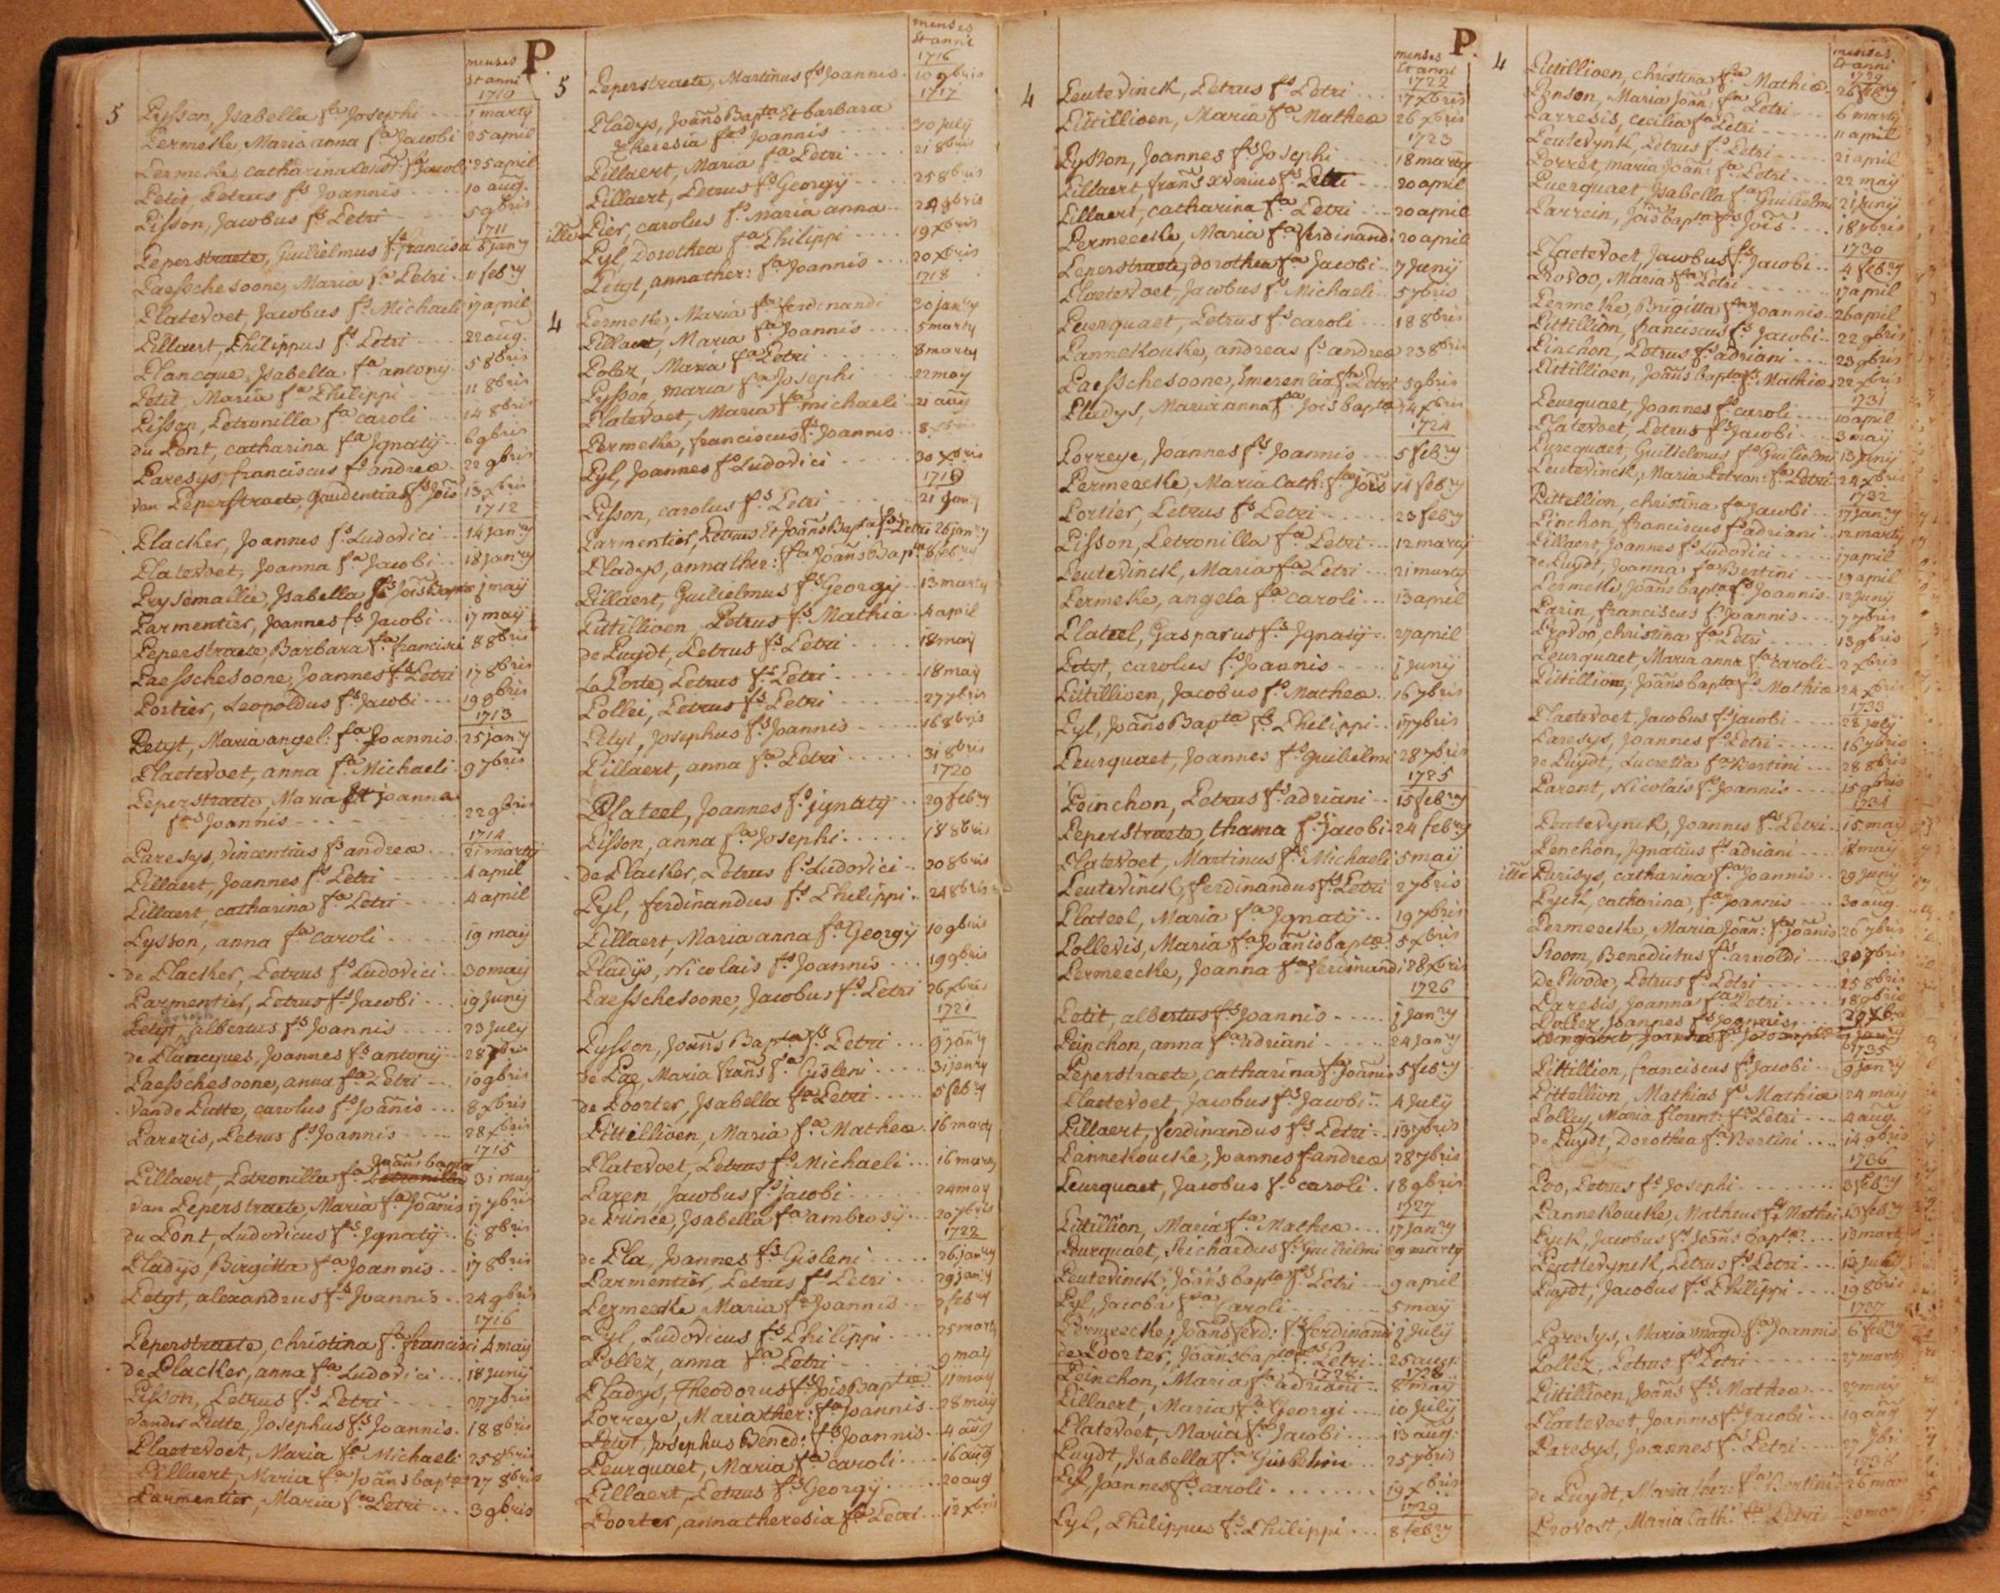 P.
menses
et anni
1710
5 Pysson, Isabella fa Josephi 1 marty
Permeke, Maria anna fa Jacobi 25 april
Permeke catharina fa Jacobi 25 april
Petit, Petrus fs Joannis 10 aug.
Pisson, Jacobus fs Petri 5 9bris
1711
Peperstraete, Guilielmus fs francisci 6 janry
Paesschesoone, Maria fa Petri 11 febry
Platevoet Jacobus fs Michaeli 17 april
Pillaert, Philippus fs Petri 22 aug.
Plancque, Isabella fa antony 5 8bris
Petit, Maria fa Philippi 11 8bris
Pisson, Petronilla fa caroli 14 8bris
du Pont, catharina fa Ignatij 6 9bris
Paresys, franciscus fs andreæ 22 9bris
van Peperstraete, Gaudentia fa Jois 13 xbris
1712
Placker, Joannes fs Ludovici 14 janry
Platevoet, Joanna fa Jacobi 18 janry
Puysemallie, Isabella fa Jois Baptæ 1 may
Parmentier, Joannes fs Jacobi 17 maij
Peperstraete, Barbara fa francisci 8 8bris
Paesschesoone, Joannes fs Petri 17 8bris
Portier, Leopoldus fs Jacobi 19 9bris
1713
Petyt, Maria angel: fa Joannis 25 janry
Plaetevoet, anna fa Michaeli 9 7bris
Peperstraete, Maria et joanna
fæ Joannis 22 9bris
1714
Paresys, vincentius fs andreæ 21 marty
Pillaert, Joannes fs Petri 4 april
Pillaert, catharina fa Petri 4 april
Pysson, anna fa caroli 19 maij
de Placker, Petrus fs Ludovici 30 maij
Parmentier, Petrus fs Jacobi 19 Junij
Petyt, albertus fs Joannis 23 July
de Plancques, Joannes fs antonij 28 7bris
Paesschesoone, anna fa Petri 10 9bris
Vande Putte, carolus fs Joannis 8 xbris
Parezis, Petrus fs Joannis 28 xbris
1715
Joannis bapta
Pillaert, Petronilla fa Petronilla 31 maij
van Peperstraete, Maria fa Joannis 17 7bris
du Pont, Ludovicus fs Ignatij 6 8bris
Pladijs, Birgitta fa Joannis 17 8bris
Petyt, alexandrus fs Joannis 24 9bris
1716
Peperstraete, christina fa francisci 4 maij
de Placker, anna fa Ludovici 18 junij
Pisson, Petrus fs Petri 27 7bris
vander Putte, Josephus fs Joannis 18 8bris
Plaetevoet, Maria fa Michaeli 25 8bris
Pillaert, Maria fa Joannis baptæ 27 8bris
Parmentier, Maria fa Petri 3 9bris
menses
et anni
1716
5 Peperstraete, Martinus fs Joannis 10 9bris
1717
Pladys, Joannes Bapta et barbara
Theresia Joannis 30 july
Pillaert, Maria fa Petri 21 8bris
Pillaert, Petrus fs Georgÿ 25 8bris
ille Pier, carolus fs Maria anna 24 9bris
Pyl, Dorothea fa Philippi 19 xbris
Petyt, anna ther: fa Joannis 20 xbris
1718
Permeke, Maria fa ferdinandi 30 janry
4 Pillaert, Maria fa Joannis 5 marty
Polez, Maria fa Petri 8 marty
Pysson, maria fa Josephi 22 may
Platevoet, Maria fa michaeli 21 aug
Permeke, franciscus fs Joannis 8
Pyl, Joannes fs Ludovici 30 xbris
1719
Pisson, carolus fs Petri 21 janry
Parmentier, Petrus et Joannes Bapta Petri 26 janry
Pladys, anna ther: fa Joannis Baptæ 8 febry
Pillaert, Guilielmus fs Georgij 13 marty
Pittillioen Petrus fs Mathiæ 4 april
de Puydt, Petrus fs Petri 18 maij
La Porte, Petrus fs Petri 18 maij
Pollei, Petrus fs Petri 27 7bris
Petyt, Josephus fs Joannis 16 8bris
Pillaert, anna fa Petri 31 8bris
1720
Plateel, Joannes fs ignatij 29 febry
Pisson, anna fa Josephi 18 8bris
de Placker, Petrus fs Ludovici 20 8bris
Pyl, ferdinandus fs Philippi 24 8bris
Pillaert, Maria anna fa Georgij 10 9bris
Pladijs, Nicolais fs Joannis 19 9bris
Paesschesoone, Jacobus fs Petri 26 xbris
1721
Pysson, Joannes Bapta fs Petri 9 janry
de Pae, Maria frans fa Gisleni 31 janry
de Poorter, Isabella fa Petri 5 febry
Pittillioen, Maria fa Matheæ 16 marty
Platevoet, Petrus fs Michaeli 16 marty
Paren, Jacobus fs jacobi 24 maij
de Prince, Isabella fa ambrosij 20 7bris
1722
de Pla, Joannes fs Gisleni 26 janry
Parmentier, Petrus fs Petri 29 janry
Permecke Maria fa Joannis febry
Pyl, Ludovicus fs Philippi 25 marty
Pollez, anna fa Petri 9 maij
Pladys, Theodorus fs Jois Baptæ 11 maij
Porreye, Maria ther: fa Joannis 28 maij
Petyt, Josephus Bened: fs Joannis 4 aug
Peurquaet, Maria fa caroli 16 aug
Pillaert, Petrus fs Georgij 20 aug
Poorter, anna theresia fa Petri 12 xbris
P.
menses
et anni
1722
4 Peutevinck, Petrus fs Petri 17 xbris
Pittillioen, Maria fa Matheæ 26 xbris
1723
Pysson, Joannes fs Josephi 18 marty
Pillaert frans xverius fs Petri 20 april
Pillaert, catharina fa Petri 20 april
Permeecke, Maria fa ferdinandi 20 april
Peperstraete, dorothea fa Jacobi 7 Junij
Plaetevoet, Jacobus fs Michaeli 5 7bris
Peurquaet, Petrus fs caroli 18 8bris
Pannekoucke, andreas fs andreæ 23 8bris
Paesschesoone, Emerentia fa Petri 3 9bris
Pladys, Maria anna fa Jois baptæ 14 xbris
1724
Porreye, Joannes fs Joannis 5 febry
Permeecke, Maria Cath: fa Jois 14 febry
Portier, Petrus fs Petri 23 febry
Pisson, Petronilla fa Petri 12 marty
Peutevinck, Maria fa Petri 21 marty
Permeke, angela fa caroli 13 april
Plateel, Gasparus fs Ignatij 27 april
Petyt, carolus fs Joannis 1 Junij
Pittillioen, Jacobus fs Matheæ 16 7bris
Pyl, Joannes Bapta fs Philippi 17 7bris
Peurquaet, Joannes fs Guilielmi 28 7bris
1725
Peinchon, Petrus fs adriani 15 febry
Peperstraete, thoma fs jacobi 24 febry
Platevoet, Martinus fs Michaeli 5 maij
Peutevinck, ferdinandus fs Petri 2 7bris
Plateel, Maria fa Ignatij 19 7bris
Pollevis, Maria fa Joannis baptæ 5 xbris
Permeecke, Joanna fa ferdinandi 28 xbris
1726
Petit, albertus fs Joannis 1 janry
Peinchon, anna fa adriani 24 janry
Peperstraete, catharina fa Joannis 5 febry
Plaetevoet, Jacobus fs Jacobi 4 Julij
Pillaert, ferdinandus fs Petri 13 7bris
Pannekoucke, Joannes fs andreæ 28 7bris
Peurquaet, Jacobus fs caroli 18 9bris
1727
Pittillion, Maria fa Matheæ 17 janry
Pourquaet, Richardus fs Guilielmi 29 marty
Peutevinck, Joannes bapta fs Petri 9 april
Pyl, Jacoba fa Caroli 5 maij
Permeecke, Joannes ferd: fs ferdinandi 2 july
de Poorter, Joannes bapta Petri 25 aug.
1728
Peinchon, Maria fa adriani 8 maij
Pillaert, Maria fa Georgi 10 july
Platevoet, Maria fa Jacobi 13 aug.
Puydt, Isabella fa 25 7bris
Pyl, Joannes fs caroli 19 xbris
1729
Pyl, Philippus fs Philippi 8 febry
menses
et anni
1729
4 Pittillioen, christina fa Mathiæ 26 febry
Pinson, Maria Joan: fa Petri 6 marty
Parresis, cecilia fa Petri 11 april
Peutevynk, Petrus fs Petri 21 april
Porret, maria Joan: fa Petri 22 maij
Puerquaet Isabella fa Guilielmi 21 junij
Parrein, Jois Bapta fs Jois 18 7bris
1730
Plaetevoet, Jacobus fs Jacobi 4 febry
Provoo, Maria fa Petri 17 april
Permeke Brigitta fa Joannis 26 april
Pittillion, franciscus fs Jacobi 22 9bris
Pinchon, Petrus fs adriani 23 9bris
Pittillioen, Joannes bapta fs Mathiæ 22 xbris
1731
Peurquaet, Joannes fs caroli 10 april
Platevoet, Petrus fs Jacobi 3 maij
Purcquaet, Guilielmus fs Guilielmi 13 junij
Peutevinck, Maria Petron: fa Petri 24 xbris
1732
Pittellion, christina fa Jacobi 17 janry
Pinchon, franciscus fs adriani 12 marty
Pillaert, Joannes fs Ludovici 17 april
de Puydt, Joanna fa Bertini 19 april
Permeke, Joannes bapta fs Joannis 12 junij
Parin, franciscus fs Joannis 7 7bris
Provoo, christina fa Petri 13 9bris
Peurquaet, Maria anna fa caroli 2 xbris
Pittillion, Joannes bapta fs Mathiæ 24 xbris
1733
Plaetevoet, Jacobus fs jacobi 28 july
Paresys, Joannes fs Petri 16 7bris
de Puydt, Lucretia fa Bertini 28 8bris
Parent, Nicolais fs Joannis 15 9bris
1734
Peutevynck, Joannes fs Petri 15 maij
Penchon, Ignatius fs adriani maij
ille Parisys, catharina fa Joannis 29 junij
Pyck, catharina, fa Joannis 30 aug.
Permeecke, Maria Joan: fa Joannis 26 7bris
Proom, Benedictus fs arnoldi 30 7bris
De Proode, Petrus fs Petri 25 8bris
Paresis, Joanna fa Petri 18 9bris
Pollez, Joannes fs Joannis 29 xbris
1735
Pittillion, franciscus fs Jacobi 9 janry
Pittellion, Mathias fs Mathiæ 24 maij
Polley, Maria florent: fa Petri 4 aug.
de Puydt, Dorothea fa Bertini 14 9bris
1736
Poo, Petrus fs Josephi 3 febry
Pannekoucke, Matheus fs Mathei 13 febry
Pyck, Jacobus fs Joannis baptæ 13 marty
Peuttevynck, Petrus fs Petri 12 july
Puydt, Jacobus fs Philippi 19 8bris
1737
Paresys, Maria magd: fa Joannis 6 febry
Pollez, Petrus fs Petri 27 marty
Pittillioen, Joannes fs Matheæ 27 maij
Plaetevoet, Joannes fs Jacobi 19 aug
Paresys, Joannes fs Petri 27 7bris
de Puydt, Maria ther: fa Bertini 26 mar
Provost, Maria Cath: fa Petri